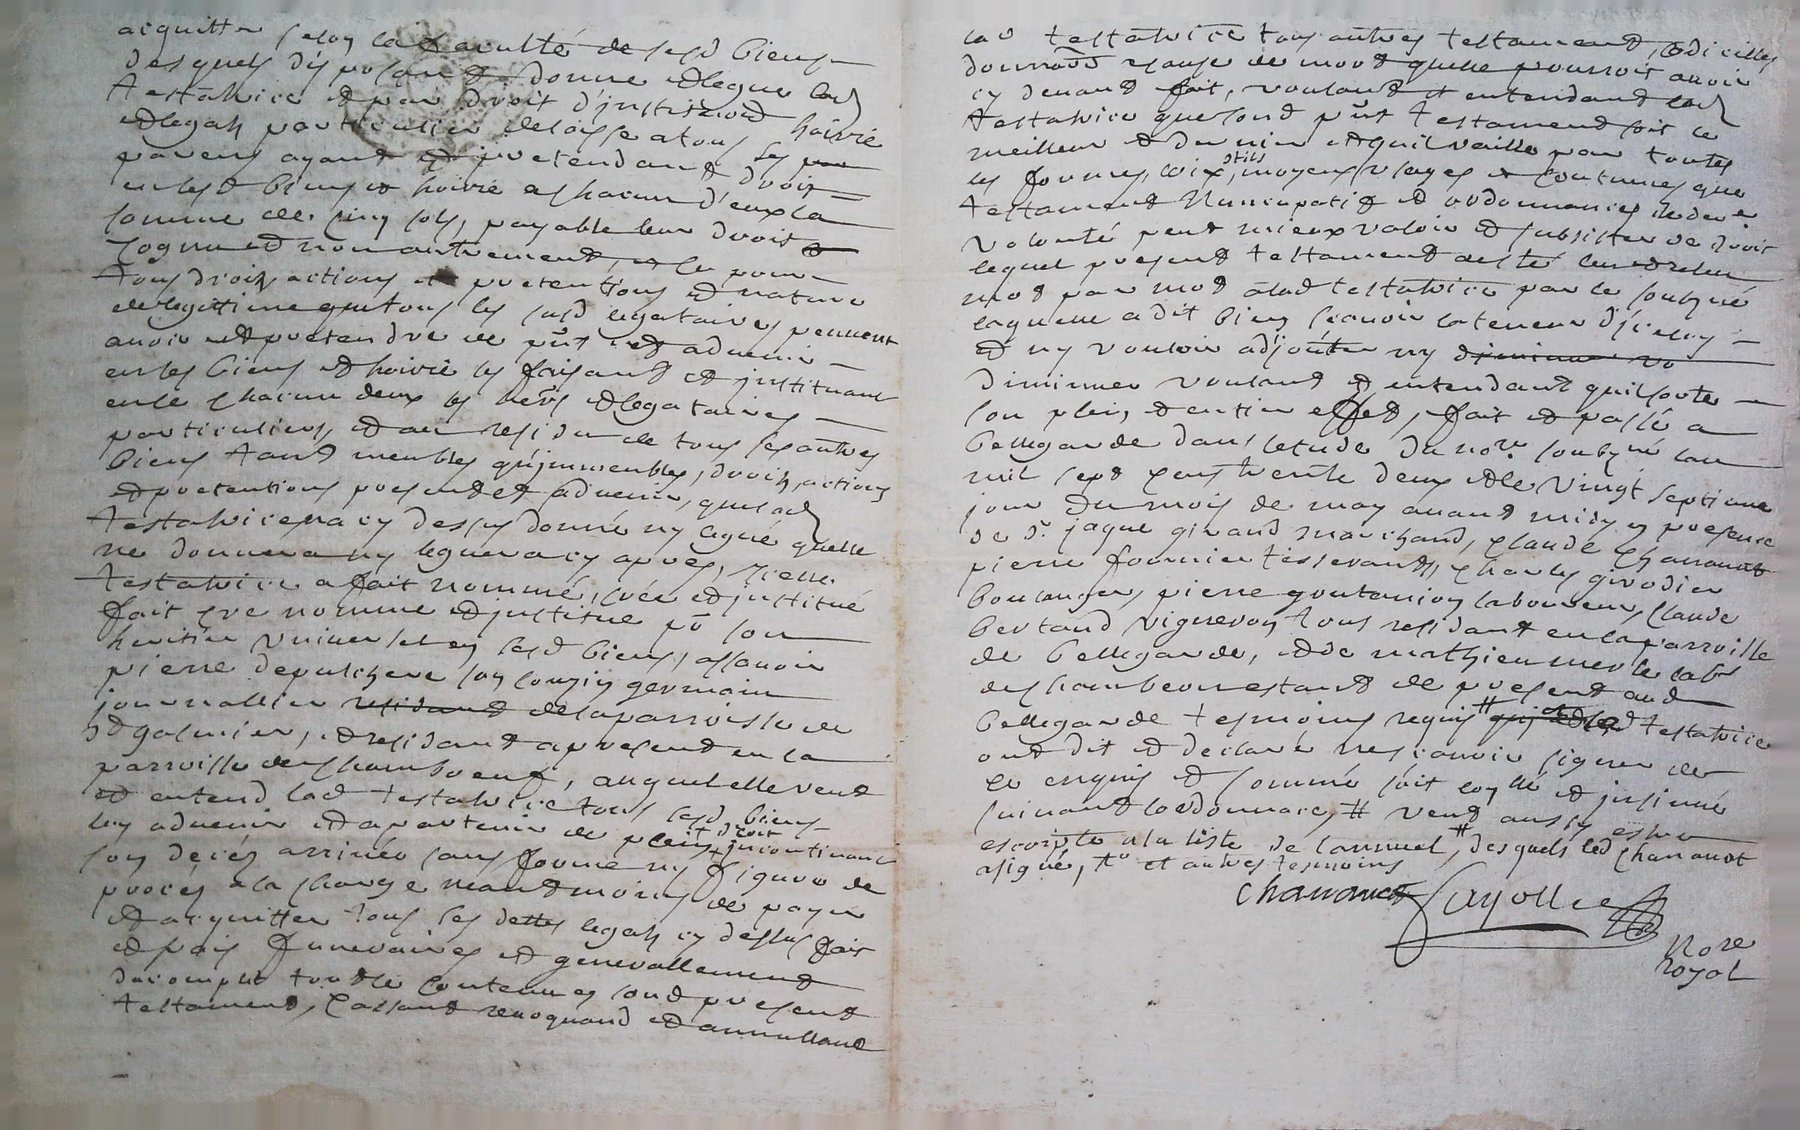 acquitter selon la faculté de sesd biens
desquels disposant donne & legue lad
testatrice et par droit d'jnstitution hoirie
& legat particulier delaisse a tous ses
parens ayant et pretendant droit
en lesd biens et hoirie a chacun d'eux la
somme de cinq sols, payable leur droit
cognu et non autrement, et ce pour
tous droits actions et pretentions et nature
de legittime que tous les susd legataires peuvent
avoir et pretendre de pñt et advenir
en ses biens et hoirie les faisant et jnstituant
en ce chacun deux ses hers & legataires
particuliers, et au residu de tous ses autres
biens tant meubles qu'jmmeubles, droits, actions
et pretentions presents et advenir, que lad
testatrice na cy dessus donné ny legué quelle
ne donnera ny leguera cy apres, jcelle
testatrice a fait nommé, créé et jnstitué
fait cre nomme et jnstitue po son
heritier universel en sesd biens, assavoir
pierre depulchere son couzin germain
journallier resident de la parroisse de
st galmier, et resident a present en la
parroisse de chambeuf, auquel elle veut
et entend lad testatrice tous sesd biens
luy advenir et apartenir de plein droit jncontinant
son deces arrivée sans forme ny figure de
proces a la charge neantmoins de payer
et acquitter tous ses dettes legats cy dessus fait
et frais funeraires et generallement
daccomplir tout le contenu en sond present
testament, cassant revoquand et annullant
lad testatrice tous autres testament, codicilles
donnaõn a cause de mort quelle pourroit avoir
cy devant fait, voulant et entendant lad
testatrice que sond pñt testament soit le
meilleur et dernier et quil vaille par toutes
les formes, loix, stils, moyens usages et coutumes que
testament Nuncupatif et ordonnances de dere
volonté peut mieux valoir et subsister de droit
lequel present testament a esté leu et releu
mot par mot a lad testatrice par le soubzné
laquelle a dit bien scavoir la teneur d'jceluy
et ny vouloir adjoúter ny diminuer vo
diminuer voulant et entendant quil sorte
son plein, et entier effet, fait et passé a
bellegarde dans letude du nore soubzné lan
mil sept cens trente deux & le vingt septieme
jour du mois de may avant midy en presence
de sr jaque girand marchand, claude chavanot
pierre fournier tisserants, charles girodier
boulanger, pierre goutanion laboureur, claude
bertand vigneron tous resident en la parroisse
de bellegarde, et de mathieu merle labr
de chambeon estant de present aud
bellegarde tesmoins requis # qui et lad testatrice
ont dit et declaré ne scavoir signer de
ce enquis et sommé soit conllé et jnsinué
suivant lordonnance, # veut aussy estre
escripte a la liste de lannuel, # desquels led chavanot
a signé, to et autres tesmoins
Chavanot Cayolle
Nore
royal